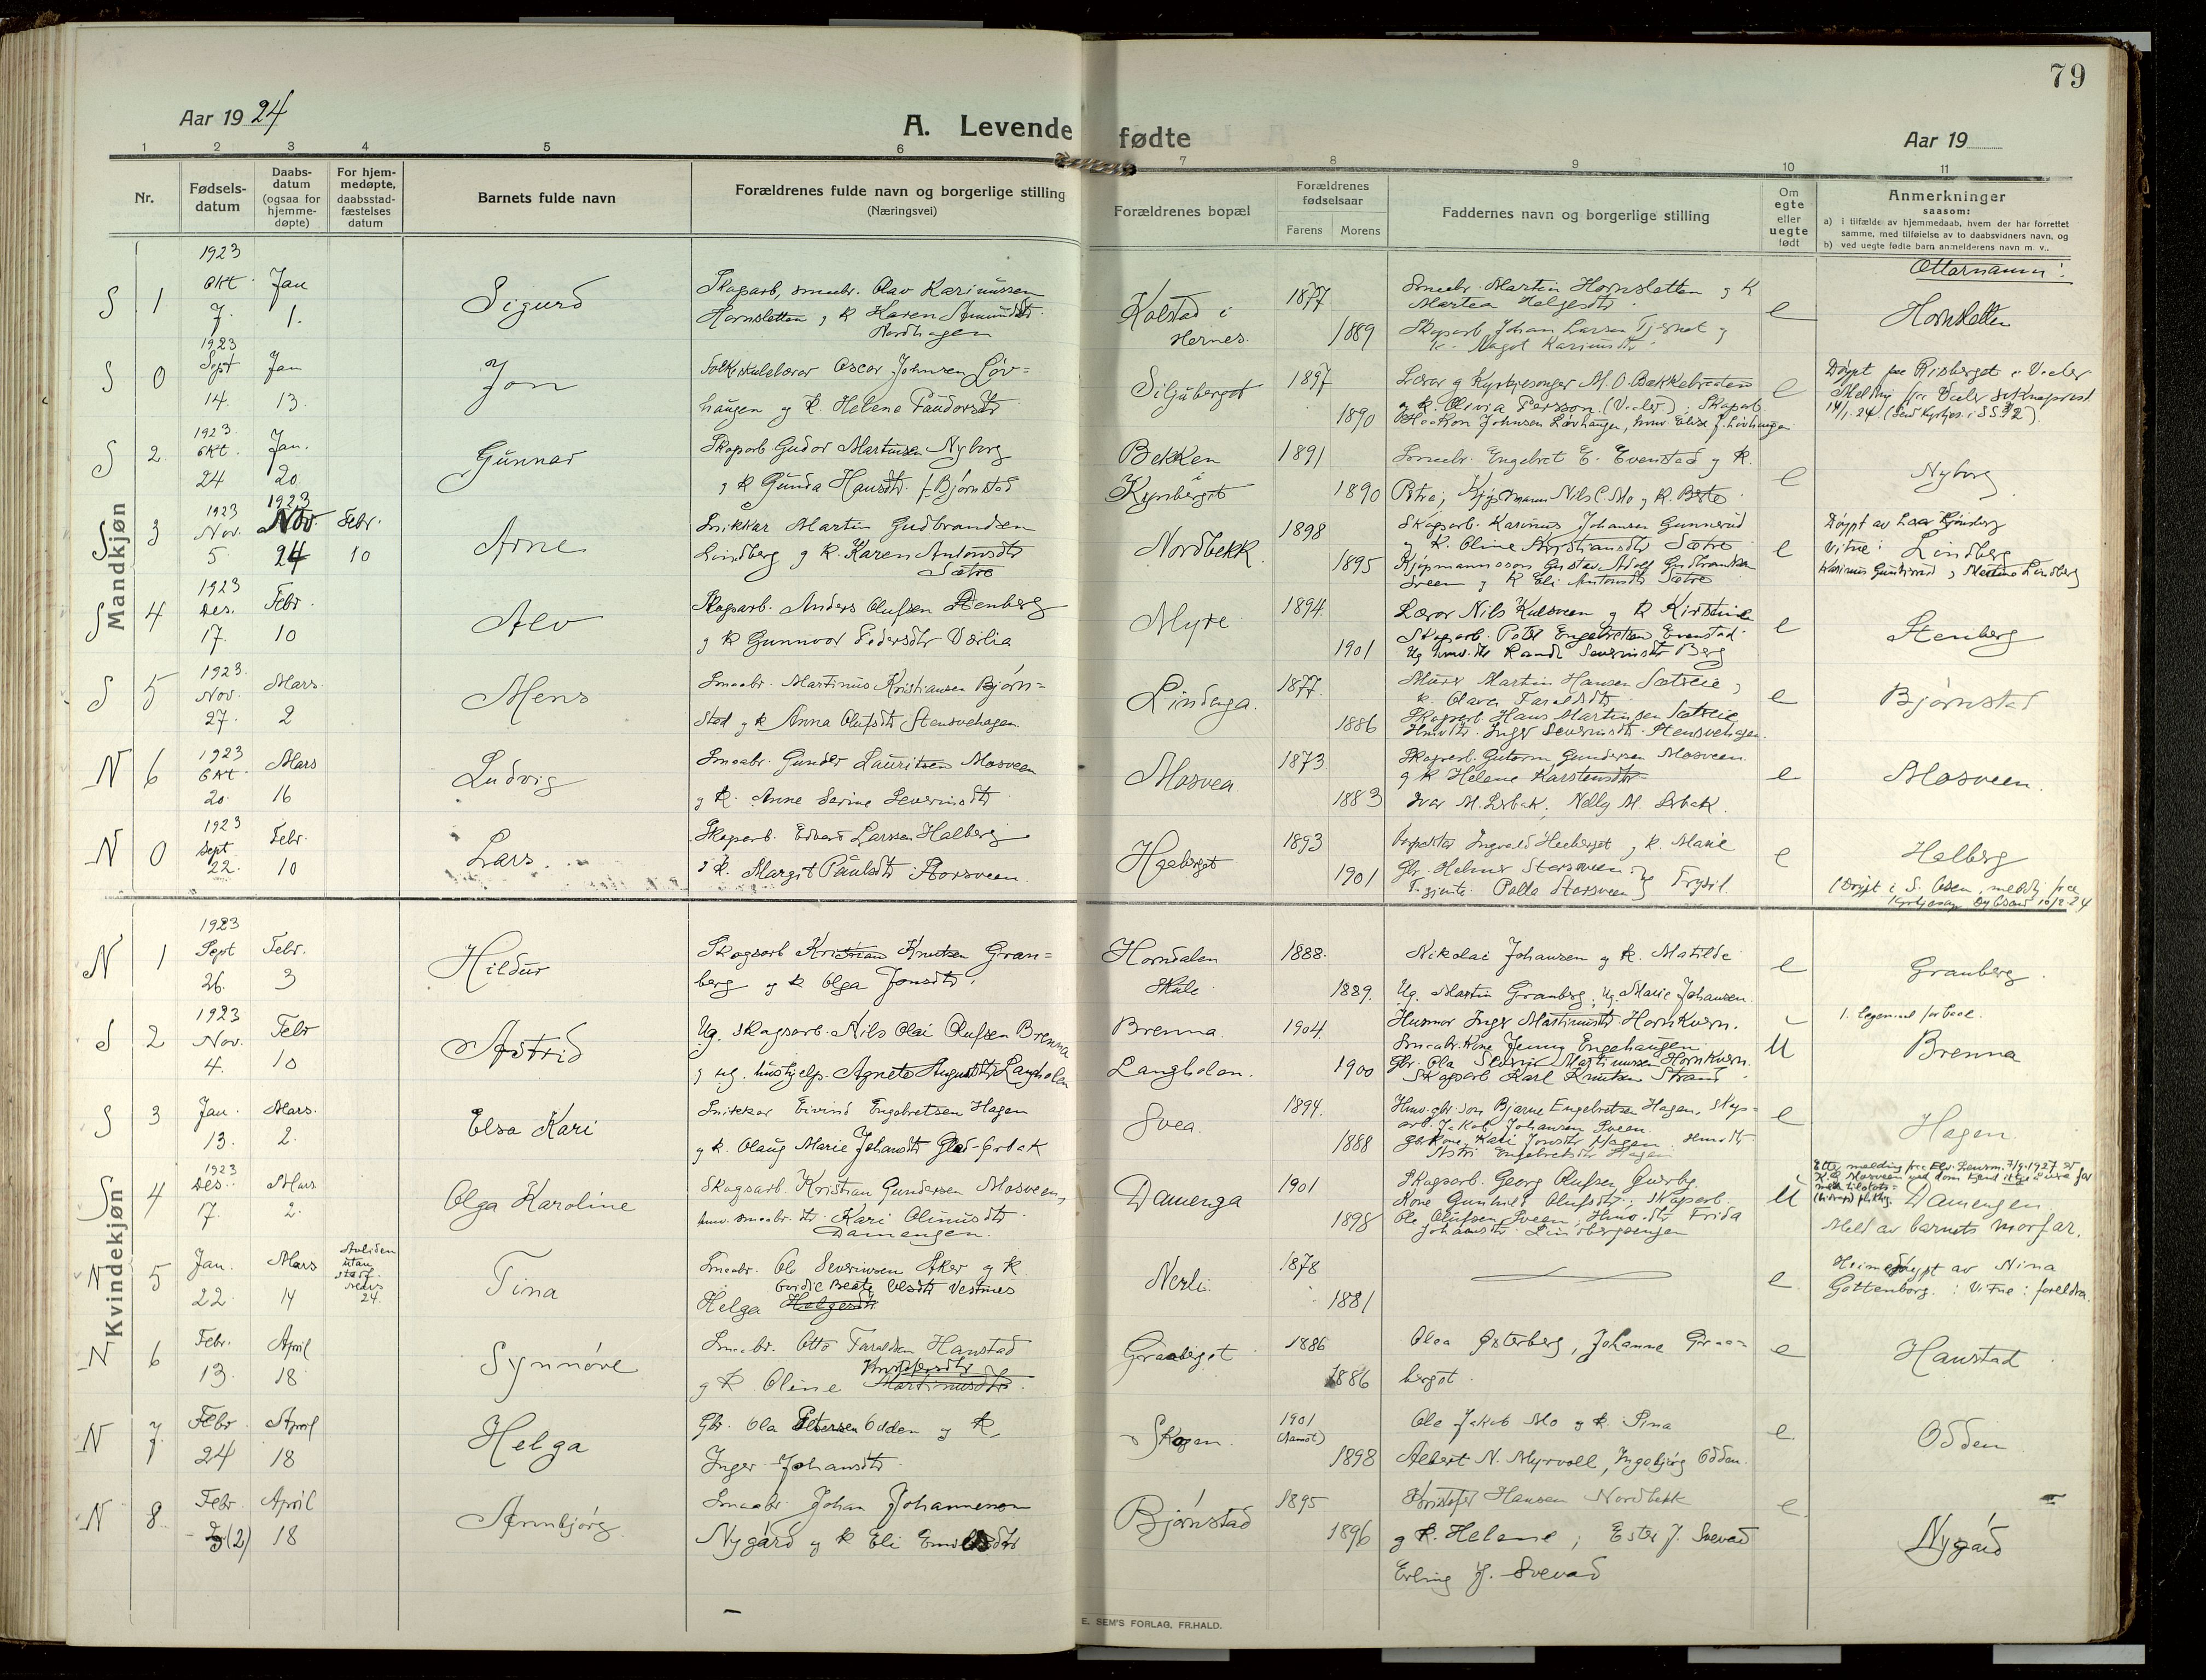 79
Aar 1924
A. Levende fødte
Aar 19
1 2 3 4 5 6 7 8 9 10 11
Nr.
Fødsels-
datum
Daabs-
datum
(ogsaa for
hjemme-
døpte)
For hjem-
medøpte,
daabsstad-
fæstelses
datum
Barnets fulde navn
Forældrenes fulde navn og borgerlige stilling
(Næringsvei)
Forældrenes bopæl
Forældrenes
fødselsaar
Farens Morens
Faddernes navn og borgerlige stilling
Om
egte
eller
uegte
født
Anmerkninger
saasom:
a) i tilfælde av hjemmedaab, hvem der har forrettet
samme, med tilføielse av to daabsvidners navn, og
b) ved uegte fødte barn anmelderens navn m. v..
Mandkjøn
Ættarnamn:
S 1 1923 Okt. 7. Jan 1. Sigurd
Skogarb, smaabr. Olav Karinussen
Hornsletten g K Haren Amundsdtr.
Nordhagen
Kolstad i
Hernes.
1877
1889
Smaabr. Martin Hornsletten g K
Martea Helgesdtr.
Skogarb Johan Larsen Tjernet g
K. Magot Karinusdtr.
e
Hornsletten
S 0 1923 Sept 14. Jan 13. Jon
Folkeskulelærar Oscar Johnsen Løv=
haugen og K. Helene Taudorsdtr
Siljuberget
1897
1890
Lærar g Kyrkjesongar M. O. Bakkebraaten
g K. Olivia Persson (Vaaler); Skogarb
Haakon Johnsen Løvhaugen, hmv. Elise J. Løvhaugen
e
Døypt paa Risberget i Vaaler
Melding fra Vaaler Sokneprest.
14/1.24.
S 2 1923. Okt. 24 Jan. 20 Gunnar
Skogarb Gudor Martinsen Nyborg
g K Gunda Hansdtr. f. Bjørnstad
Bekken
i
Kynberget
1891
1890
Smaabr. Engebret E. Evenstad g K.
Petra; Kjøpmann Nils C. Mo g K. Beste
e
Nyborg
S 3 1923 Nov. 5 1923 Nov. 24 Febr. 10 Arne
Snikkar Martin Gudbrandsen
Lindberg g K. Karen Antonsdtr
Sætre
Nordbekk.
1898
1895
Skogarb. Karinus Johansen Gunnerud
g K. Oline Kristiansdtr Sætre
Kjøpmannsson Gustav Adolf Gudbrandsen
Sveen g K Eli Antonsdtr Sætre
e
Døypt av
Vitne: Lindberg
Karinus Gunnerud g Martine Lindberg
S 4 1923 Des. 17. Febr. 10 Alv
Skogarb. Anders Olufsen Stenberg
g K Gunnvor Pedersdtr Værlia
Myre
1894.
1901
Lærar Nils Kulsveen g K Kirstine
Skogarb. Peter Engebretsen Evenstad.
Ug hmv. dtr Randi Severinsdtr Berg
e
Stenberg
S 5 1923. Nov. 27. Mars. 2 Mens
Smaabr. Martinus Kristiansen Bjørn=
stad g K Anna Olufsdtr Stensvehagen.
Lindenga.
1877.
1886
Murar Martin Hansen Sætreie,
K. Olava Taraldsdtr.
Skogarb Hans Martinsen Sætreie
Hmvdtr. Inger Severinsdtr. Stensvehagen.
e
Bjørnstad
N 6 1923 Okt 20. Mars 16 Ludvig
Smaabr. Gunder Lauritsen Mosveen
g K. Anne Serine Severinsdtr
Mosvea
1873
1883
Skogarb. Gutorm Gundersen Mosveen.
g K Helene Karstensdtr
Ivar M. Erbak, Nelly M. Erbak.
e
Mosveen.
N 0 1923 Sept 22. Febr. 10 Lars.
Skogarb. Edvard Larssen Halberg
g K. Margit Paulsdtr Storsveen.
Haaberget
1893
1901
Ingvald Haaberget g K. Marie
Gbr. Helmer Storsveen
gjente Palla Storsveen } Trysil
e
Halberg
(Døypt i S. Osen, meldg fraa
10/2-24
Kvindekjøn
N 1 1923 Sept 26. Febr. 3 Hildur
Skogsarb Kristian Knutsen Gran=
berg og K Olga Jonsdtr.
Horndalen
Skule
1888.
1889.
Nikolai Johansen g K. Matilde
Ug. Martin Granberg, Ug. Marie Johansen
e
Granberg
S 2 1923 Nov. 4. Febr 10 Astrid
Ug. Skogsarb. Nils Olai Olufsen Brenna
g ug. hushjelp. Agnete Augustsdtr Langholen
Brenna
Langholen.
1904.
1900
Husmor Inger Martinusdtr Hornkvern.
Smaabr. Kone Jenny Engehaugen
Gbr. Ola Martinussen Hornkvern
Skogarb Karl Knutsen Strand
U
Brenna
S 3 Jan. 13. Mars. 2. Elsa Kari
Snikkar Eivind Engebretsen Hagen
g K. Olaug Marie Johansdtr Glad-Ørbak
Svea
1894.
1888
Hmv. gbr. son Bjarne Engebretsen Hagen, Skog=
arb. Jakob Johansen Sveen.
Gbr. Kone Kari Jonsdtr Hagen. Hmvdtr
Astri Engebretsdtr Hagen
e
Hagen.
S 4 1923 Des. 17. Mars 2. Olga Karoline
Skogsarb. Kristian Gundersen Mosveen,
hmv. smaabr. dtr. Kari Olinusdtr
Damengen.
Damenga
1901
1898
Skogsarb. Georg Olufsen Querby.
Kone Gunhild Olufsdtr; Skogarb.
Ole Olufsen Sveen, Hmv. dtr Frida
Johansdtr. Lindbergsengen
U
Damengen
Meld av barnets morfar.
N 5 Jan. 22 Mars 14 Avliden
utan
stadf.
Mars
24. Tina
Smaabr. Ole Severinsen Aker g K
Beate Olsdtr Vestnes
Helga Helgesdtr
Nerli.
1878
1881
e.
Heimedøypt av Nina
Gottenborg. : Vitne: foreldra.
N 6 Febr. 13. April 18 Synnøve
Smaabr. Otto Taraldsen Hanstad
Kristofersdtr
g K. Oline Martinusdtr.
Graaberget
1886
1886
Olaa Østerberg, Johanne Graa=
berget.
e
Hanstad
N 7. Febr 24 April 18 Helga
Gbr. Ola Petersen Odden g K.
Inger Johansdtr
Skogen.
1901
(Aamot)
1898
Ole Jakob Mo g K. Sina
Albert N. Myrvoll, Ingebjørg Odden.
e.
Odden
N 8 Febr 3(2) April 18 Arnbjørg.
Smaabr Johan Johannessen
Nygård g K Eli Emilsdtr
Bjørnstad
1895
1896
Kristofer Hansen Nordbekk
g K. Helene; Ester J. Svevad
Erling J. Svevad
e.
Nygård
E. SEM'S FORLAG, FR.HALD.